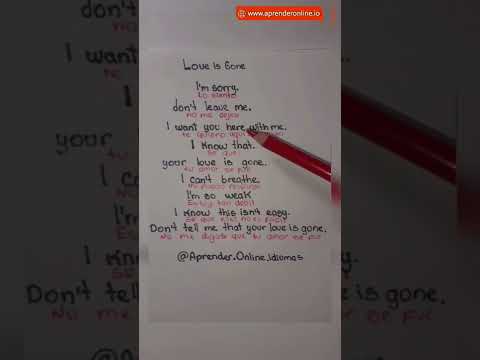 www.aprenderonline.io
Love is Gone
I'm sorry.
Lo siento
don't leave me.
no me dejes
I want you here with me.
te quiero aquí
I know that.
Se que
your love is gone.
tu amor se fue
I can't breathe.
no puedo respirar
I'm so weak
Estoy tan debil
I know this isn't easy.
Se que esto no es fácil
Don't tell me that your love is gone.
No me digas que tu amor se fue
@Aprender.Online.Idiomas